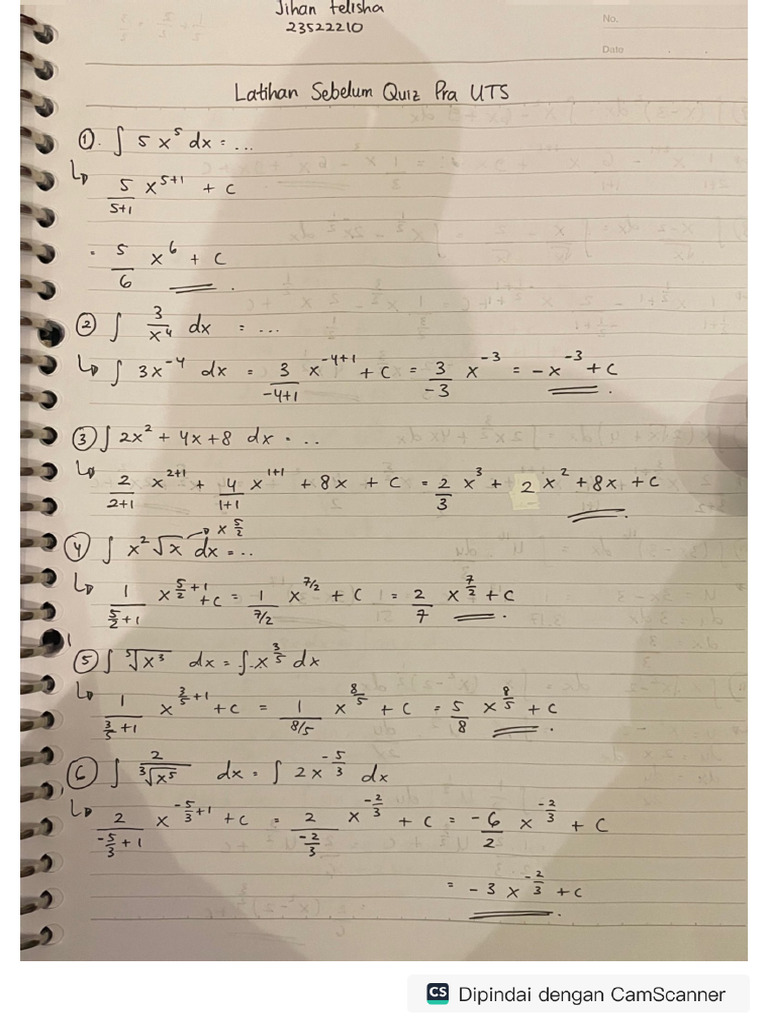 Jihan felisha
23522210
No.
Date
Latihan Sebelum Quiz Pra UTS
①. ∫ 5x⁵ dx = ...
↳ 5/(5+1) x^(5+1) + c
= 5/6 x⁶ + c
② ∫ 3/x⁴ dx = ...
↳ ∫ 3x^(-4) dx = 3/(-4+1) x^(-4+1) + c = 3/(-3) x^(-3) = -x^(-3) + c
③ ∫ 2x² + 4x + 8 dx = ...
↳ 2/(2+1) x^(2+1) + 4/(1+1) x^(1+1) + 8x + c = 2/3 x³ + 2x² + 8x + c
④ ∫ x²√x dx = ... → x^(5/2)
↳ 1/(5/2+1) x^(5/2+1) + c = 1/(7/2) x^(7/2) + c = 2/7 x^(7/2) + c
⑤ ∫ ⁵√x³ dx = ∫ x^(3/5) dx
↳ 1/(3/5+1) x^(3/5+1) + c = 1/(8/5) x^(8/5) + c = 5/8 x^(8/5) + c
⑥ ∫ 2/³√x⁵ dx = ∫ 2x^(-5/3) dx
↳ 2/(-5/3+1) x^(-5/3+1) + c = 2/(-2/3) x^(-2/3) + c = -6/2 x^(-2/3) + c
= -3x^(-2/3) + c
CS Dipindai dengan CamScanner